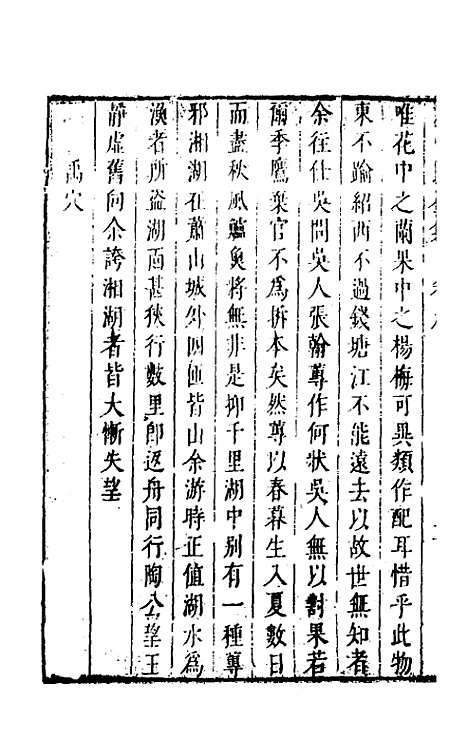 唯花中之蘭果中之楊梅可異類作配耳惜乎此物
東不踰紹西不過錢塘江不能遠去以故世無知者
余往仕吳問吳人張翰蓴作何狀吳人無以對果若
爾季鷹棄官不爲折本矣然蓴以春暮生入夏數日
而盡秋風鱸魚將無非是抑千里湖中别有一種蓴
邪湘湖在蕭山城外四匝皆山余游時正值湖水爲
漁者所盜湖面甚狹行數里即返舟同行陶公望王
靜虛舊向余誇湘湖者皆大慚失望
禹穴